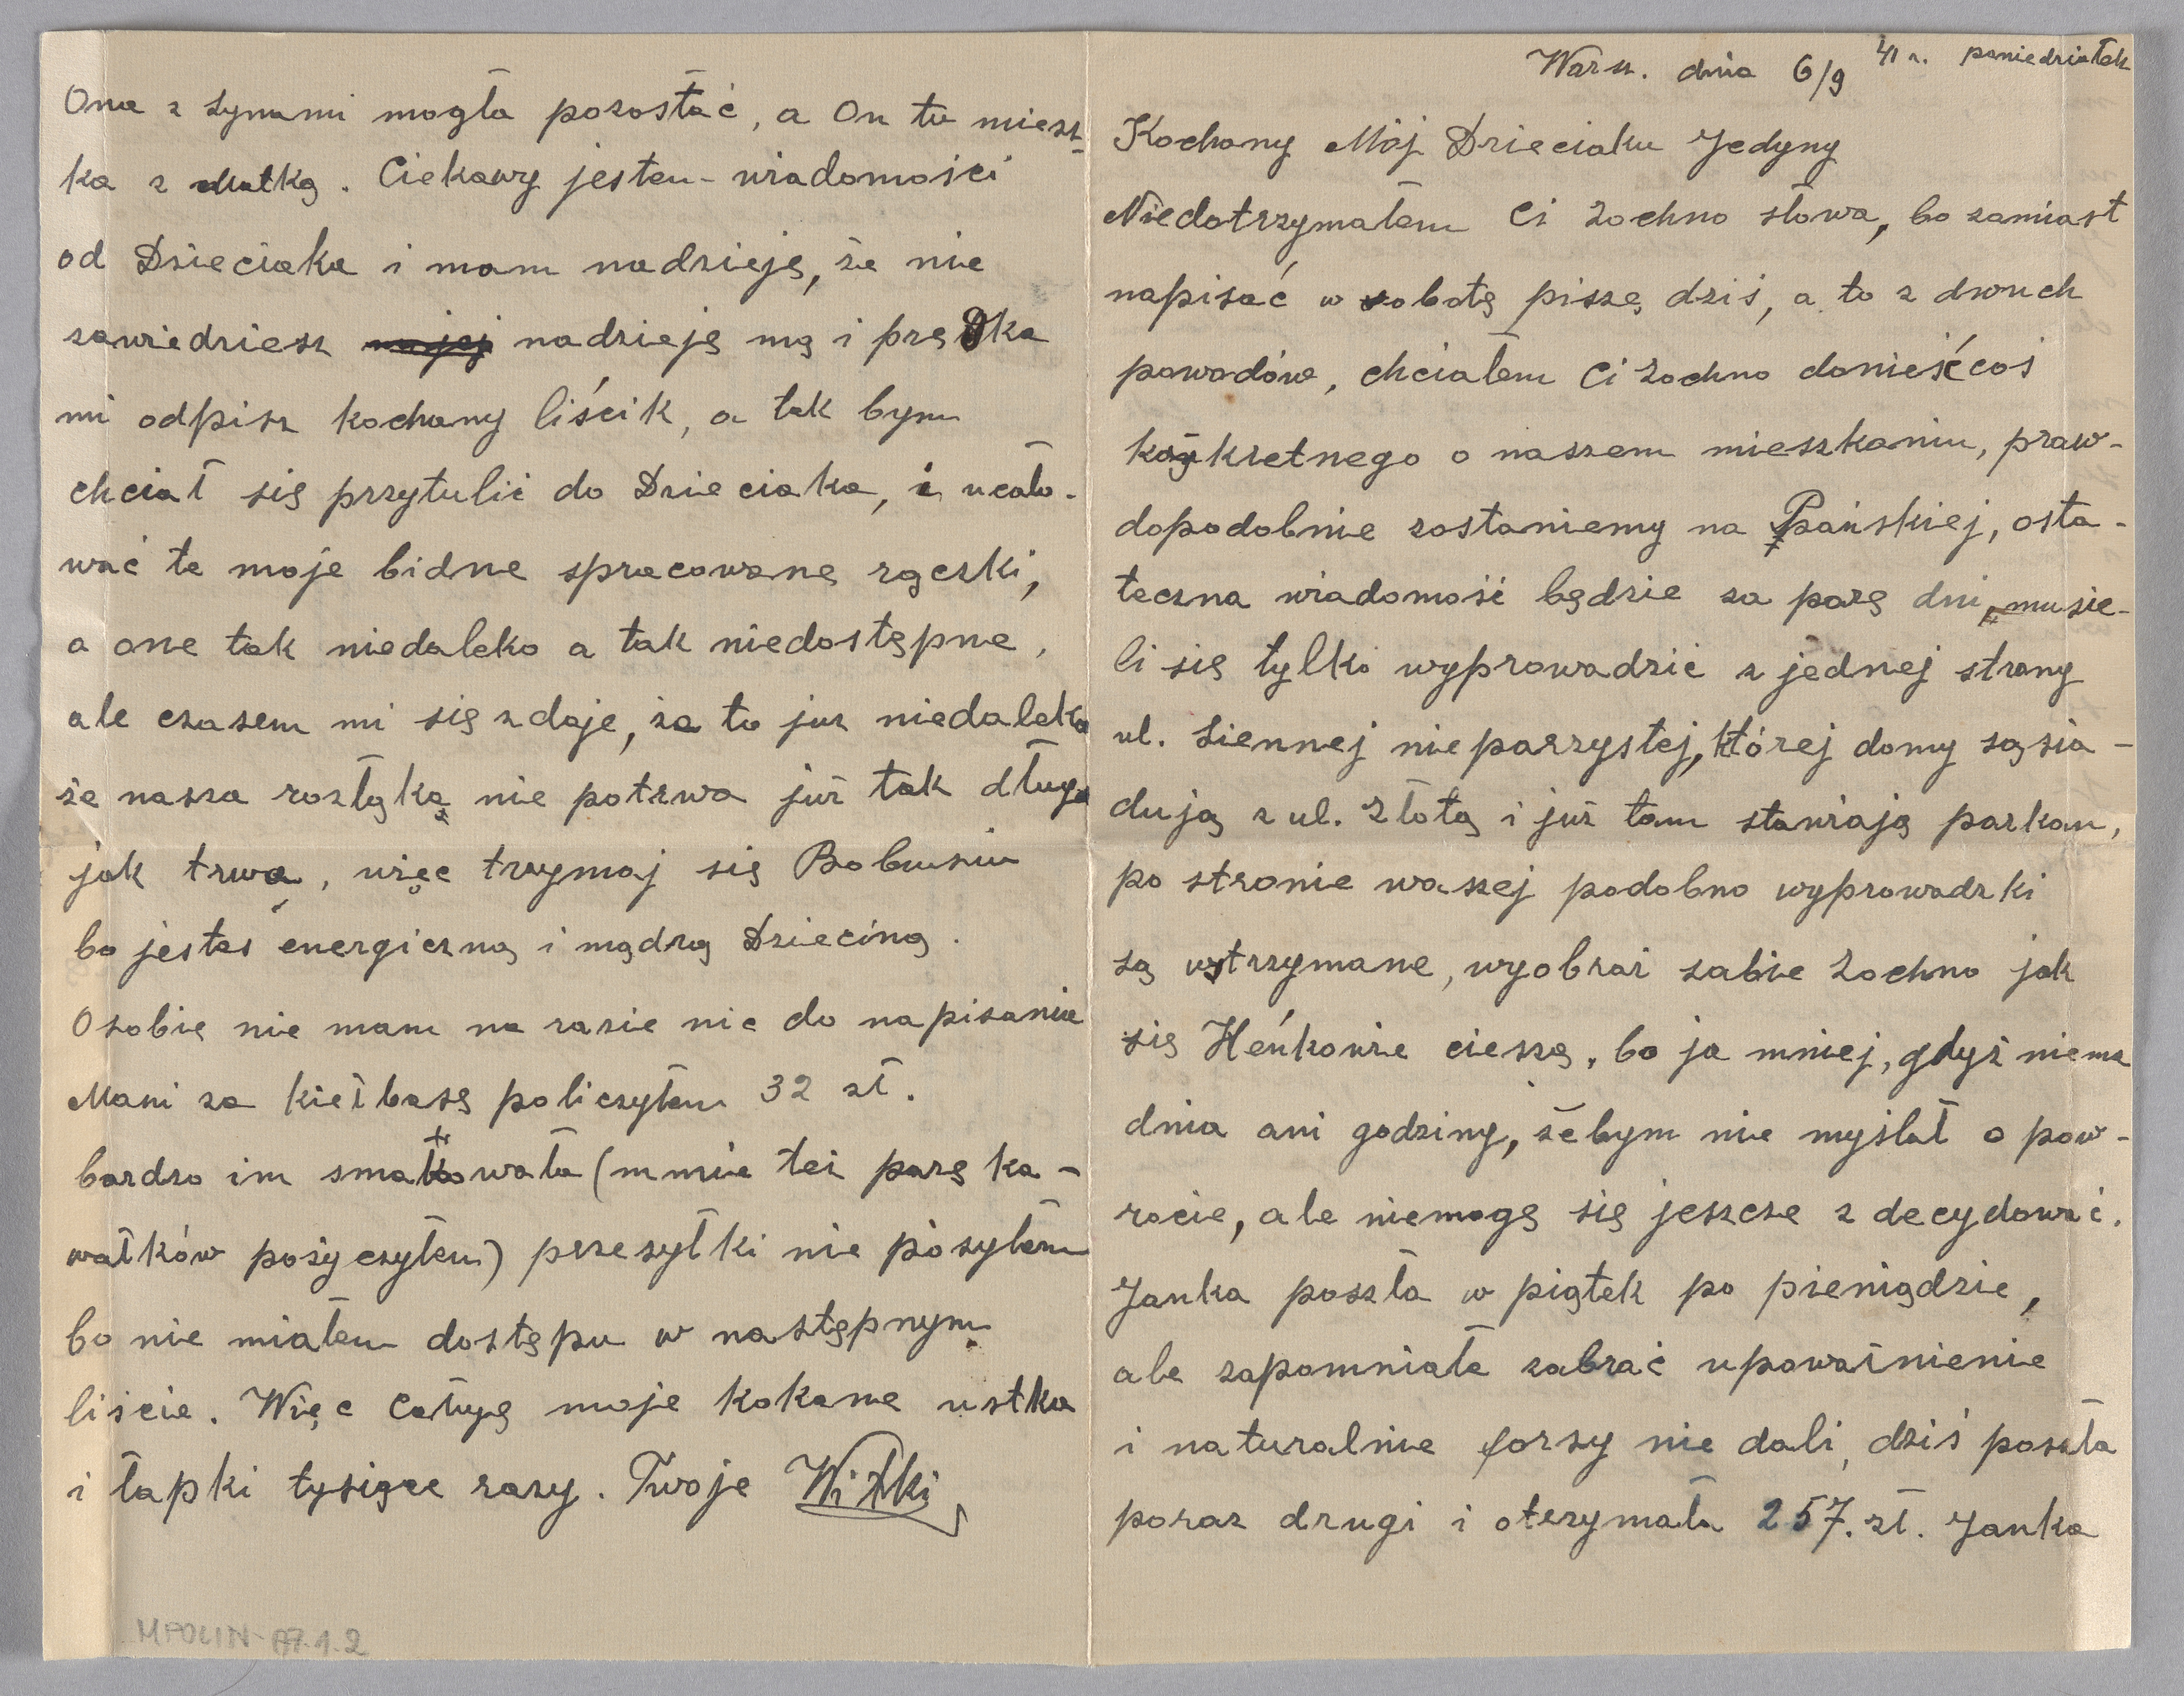 Warsz. dnia 6/9 41 r. poniedziałek
Kochany Mój Dzieciaku Jedyny
Niedotrzymałem Ci Zochno słowa, bo zamiast
napisać w sobotę piszę dziś, a to z dwuch
powodów, chciałem Ci Zochno donieść coś
konkretnego o naszem mieszkaniu, praw-
dopodobnie zostaniemy na Pańskiej, osta-
teczna wiadomość będzie za parę dni, musie-
li się tylko wyprowadzić z jednej strony
ul. Siennej nieparzystej, której domy sąsia-
dują z ul. Złotą i już tam stawiają parkan,
po stronie waszej podobno wyprowadzki
są wstrzymane, wyobraź sobie Zochno jak
się Heńkowie cieszą, bo ja mniej, gdyż niema
dnia ani godziny, żebym nie myślał o pow-
rocie, ale niemogę się jeszcze zdecydować.
Janka poszła w piątek po pieniądzie,
ale zapomniała zabrać upoważnienie
i naturalnie forsy nie dali, dziś poszła
poraz drugi i otrzymała 257. zł. Janka
Ona z synami mogła pozostać, a On tu miesz-
ka z Matką. Ciekawy jestem wiadomości
od Dzieciaka i mam nadzieję, że nie
zawiedziesz nadzieję mą i prędko
mi odpisz kochany liścik, a tak bym
chciał się przytulić do Dzieciaka, i ucało-
wać te moje bidne spracowane rączki,
a one tak niedaleko a tak niedostępne,
ale czasem mi się zdaje, że to już niedaleko
że nasza rozłąka nie potrwa już tak długo
jak trwa, więc trzymaj się Bobusiu
bo jesteś energiczną i mądrą Dzieciną.
O sobie nie mam na razie nic do napisania
Mani za kiełbasę policzyłem 32 zł.
bardzo im smakowała (mnie też parę ka-
wałków pożyczyłem) przesyłki nie posyłam
bo nie miałem dostępu w następnym
liście. Więc całuję moje kokane ustka
i łapki tysiące razy. Twoje Witki
MPOLIN-A7.1.2